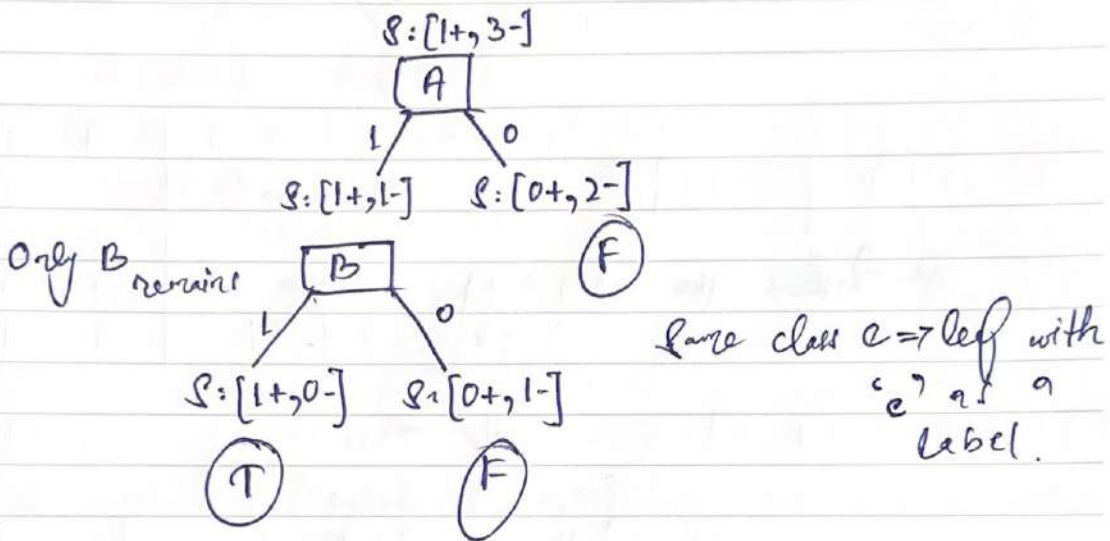 S:[1+, 3-]
A
1 0
S:[1+, 1-] S:[0+, 2-]
Only B remains
B
F
1 0
Same class c => leaf with
S:[1+, 0-] S:[0+, 1-]
'c' as a
label.
T F